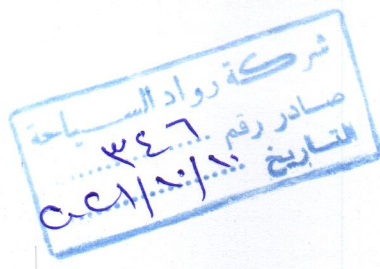 شركة رواد السياحة
صادر رقم ٣٤٦
التاريخ ٢٠٢١/١٠/١٠